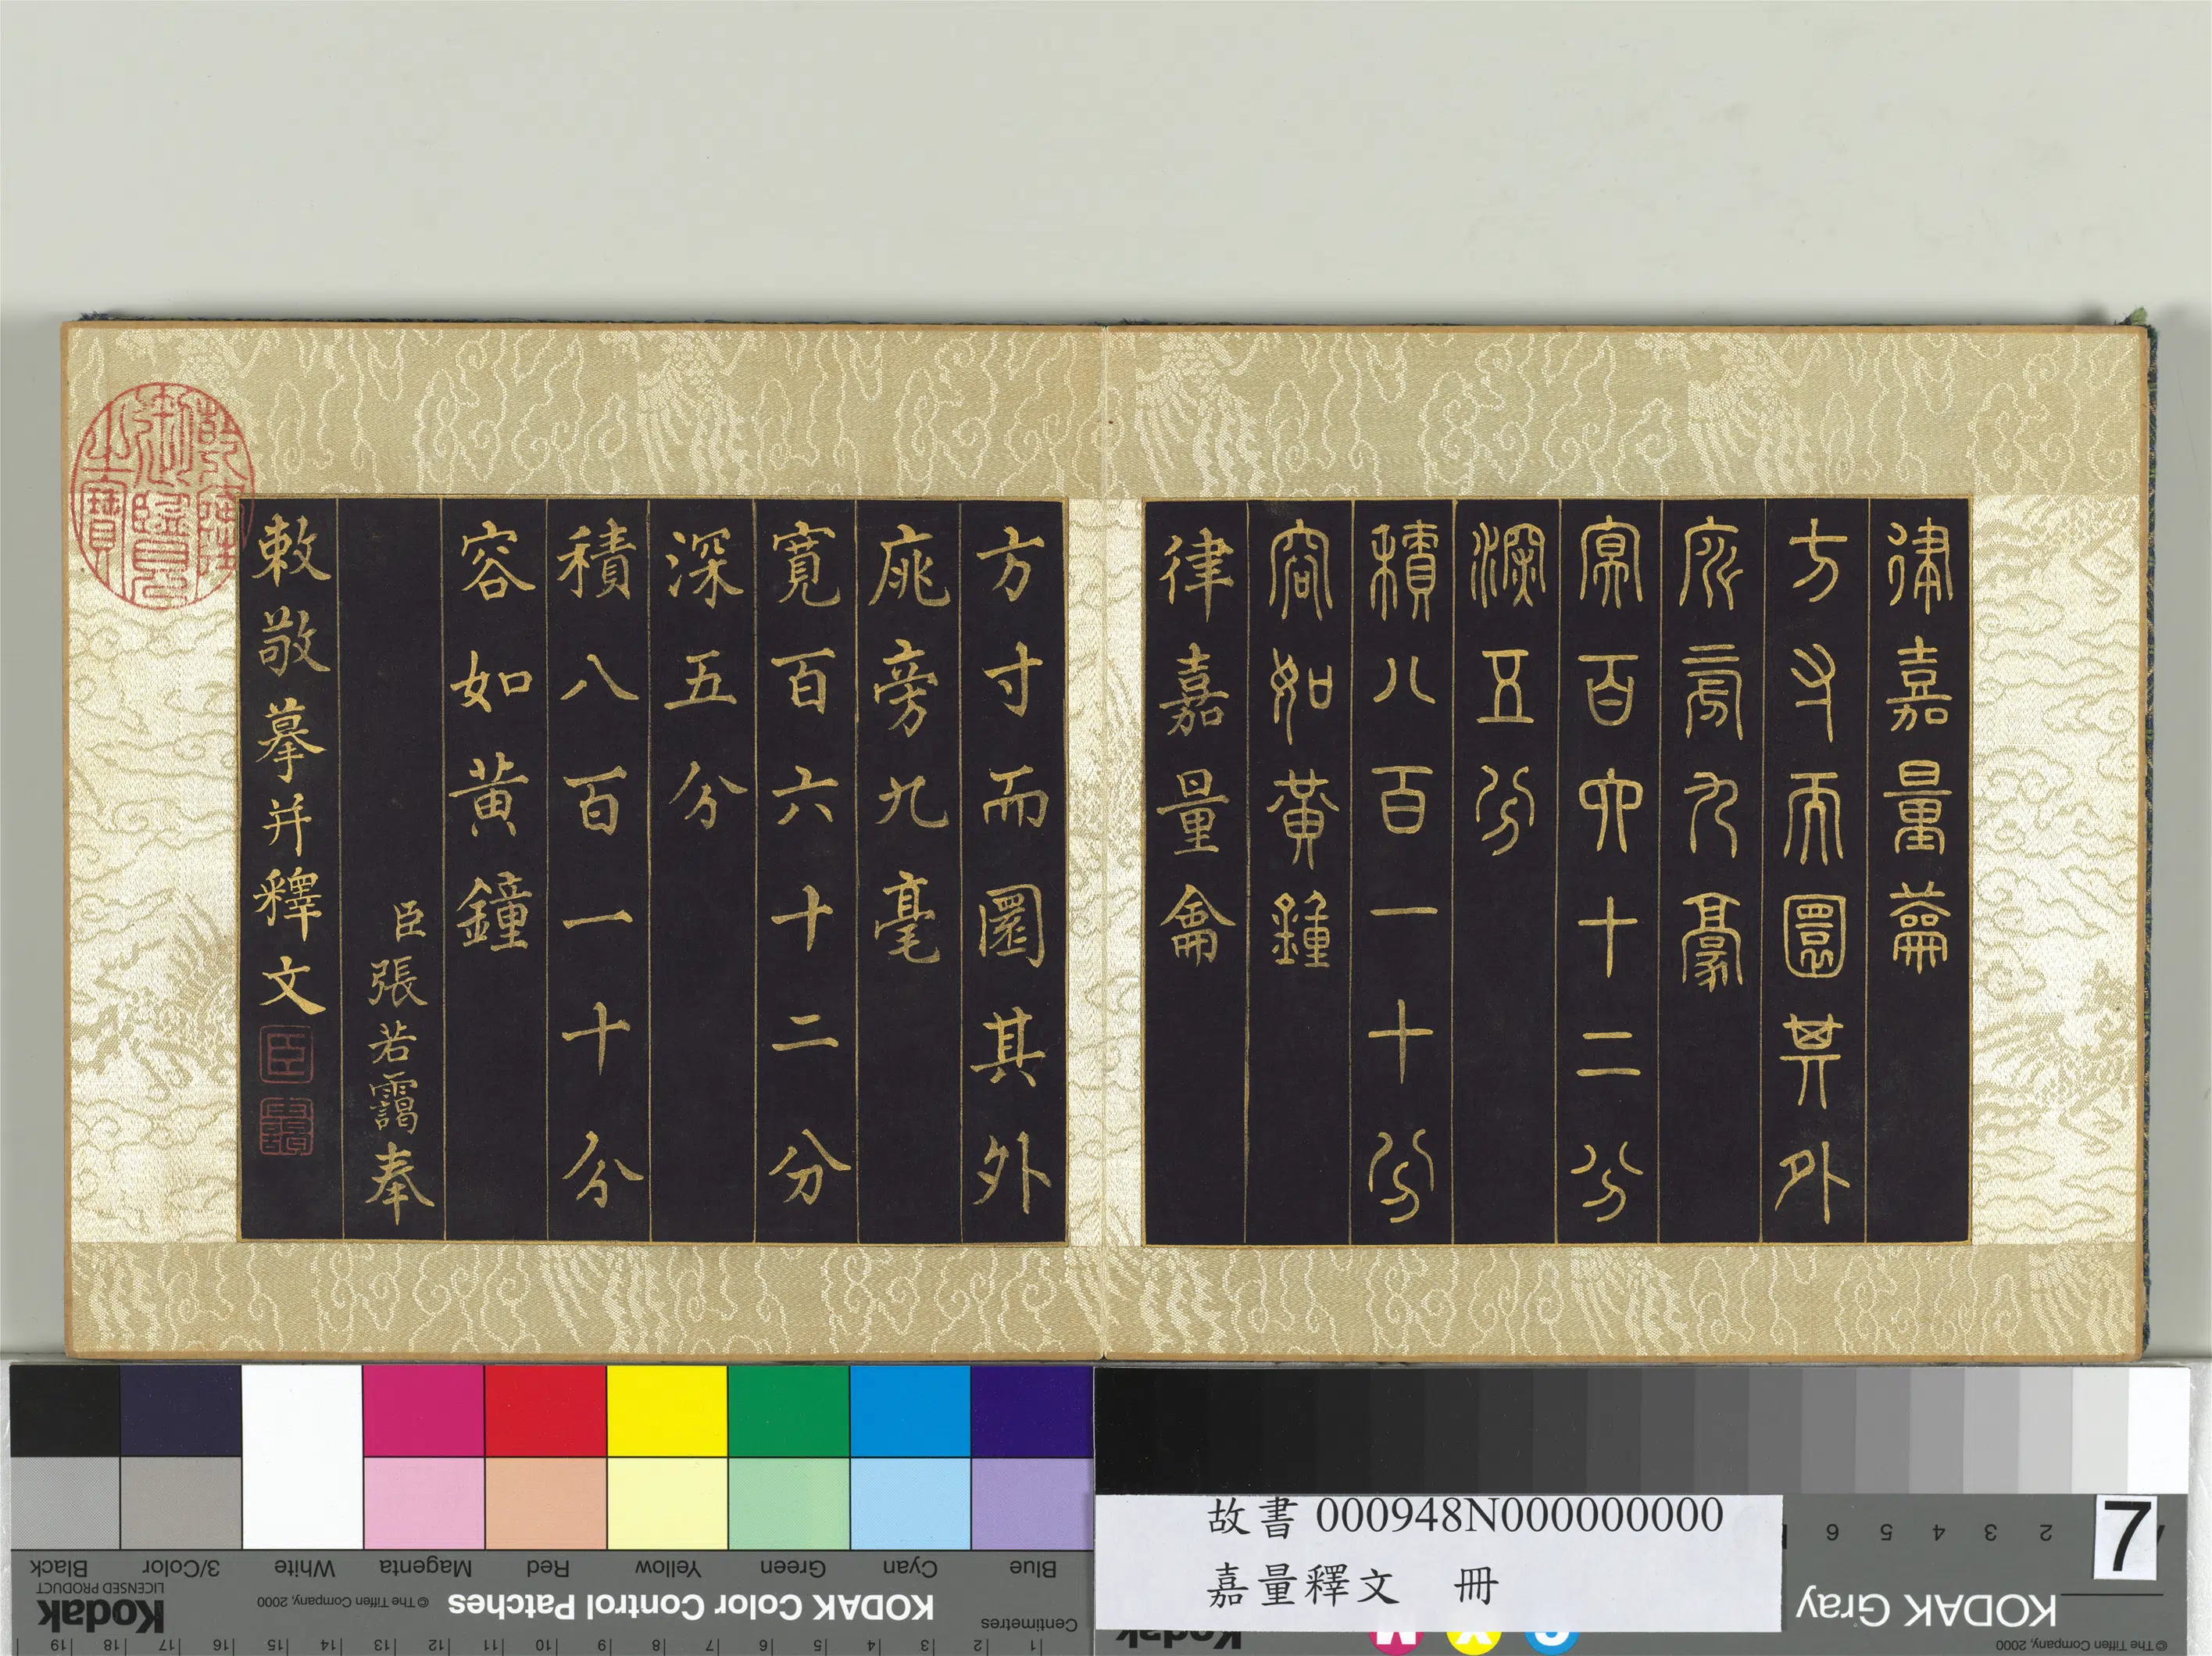 律嘉量籥
方寸而圜其外
庣旁九豪
冥百六十二分
深五分
積八百一十分
容如黃鍾
律嘉量龠
方寸而圜其外
庣旁九毫
寬百六十二分
深五分
積八百一十分
容如黃鐘
臣張若靄奉
敕敬摹并釋文
乾隆御覽之寶
臣
故書 000948N000000000
嘉量釋文 冊
7
KODAK Color Control Patches
© The Tiffen Company, 2000
Kodak
LICENSED PRODUCT
Blue
Cyan
Green
Yellow
Red
Magenta
White
3/Color
Black
Centimetres
1 2 3 4 5 6 7 8 9 10 11 12 13 14 15 16 17 18 19
KODAK Gray
© The Tiffen Company, 2000
2 3 4 5 6
Kodak